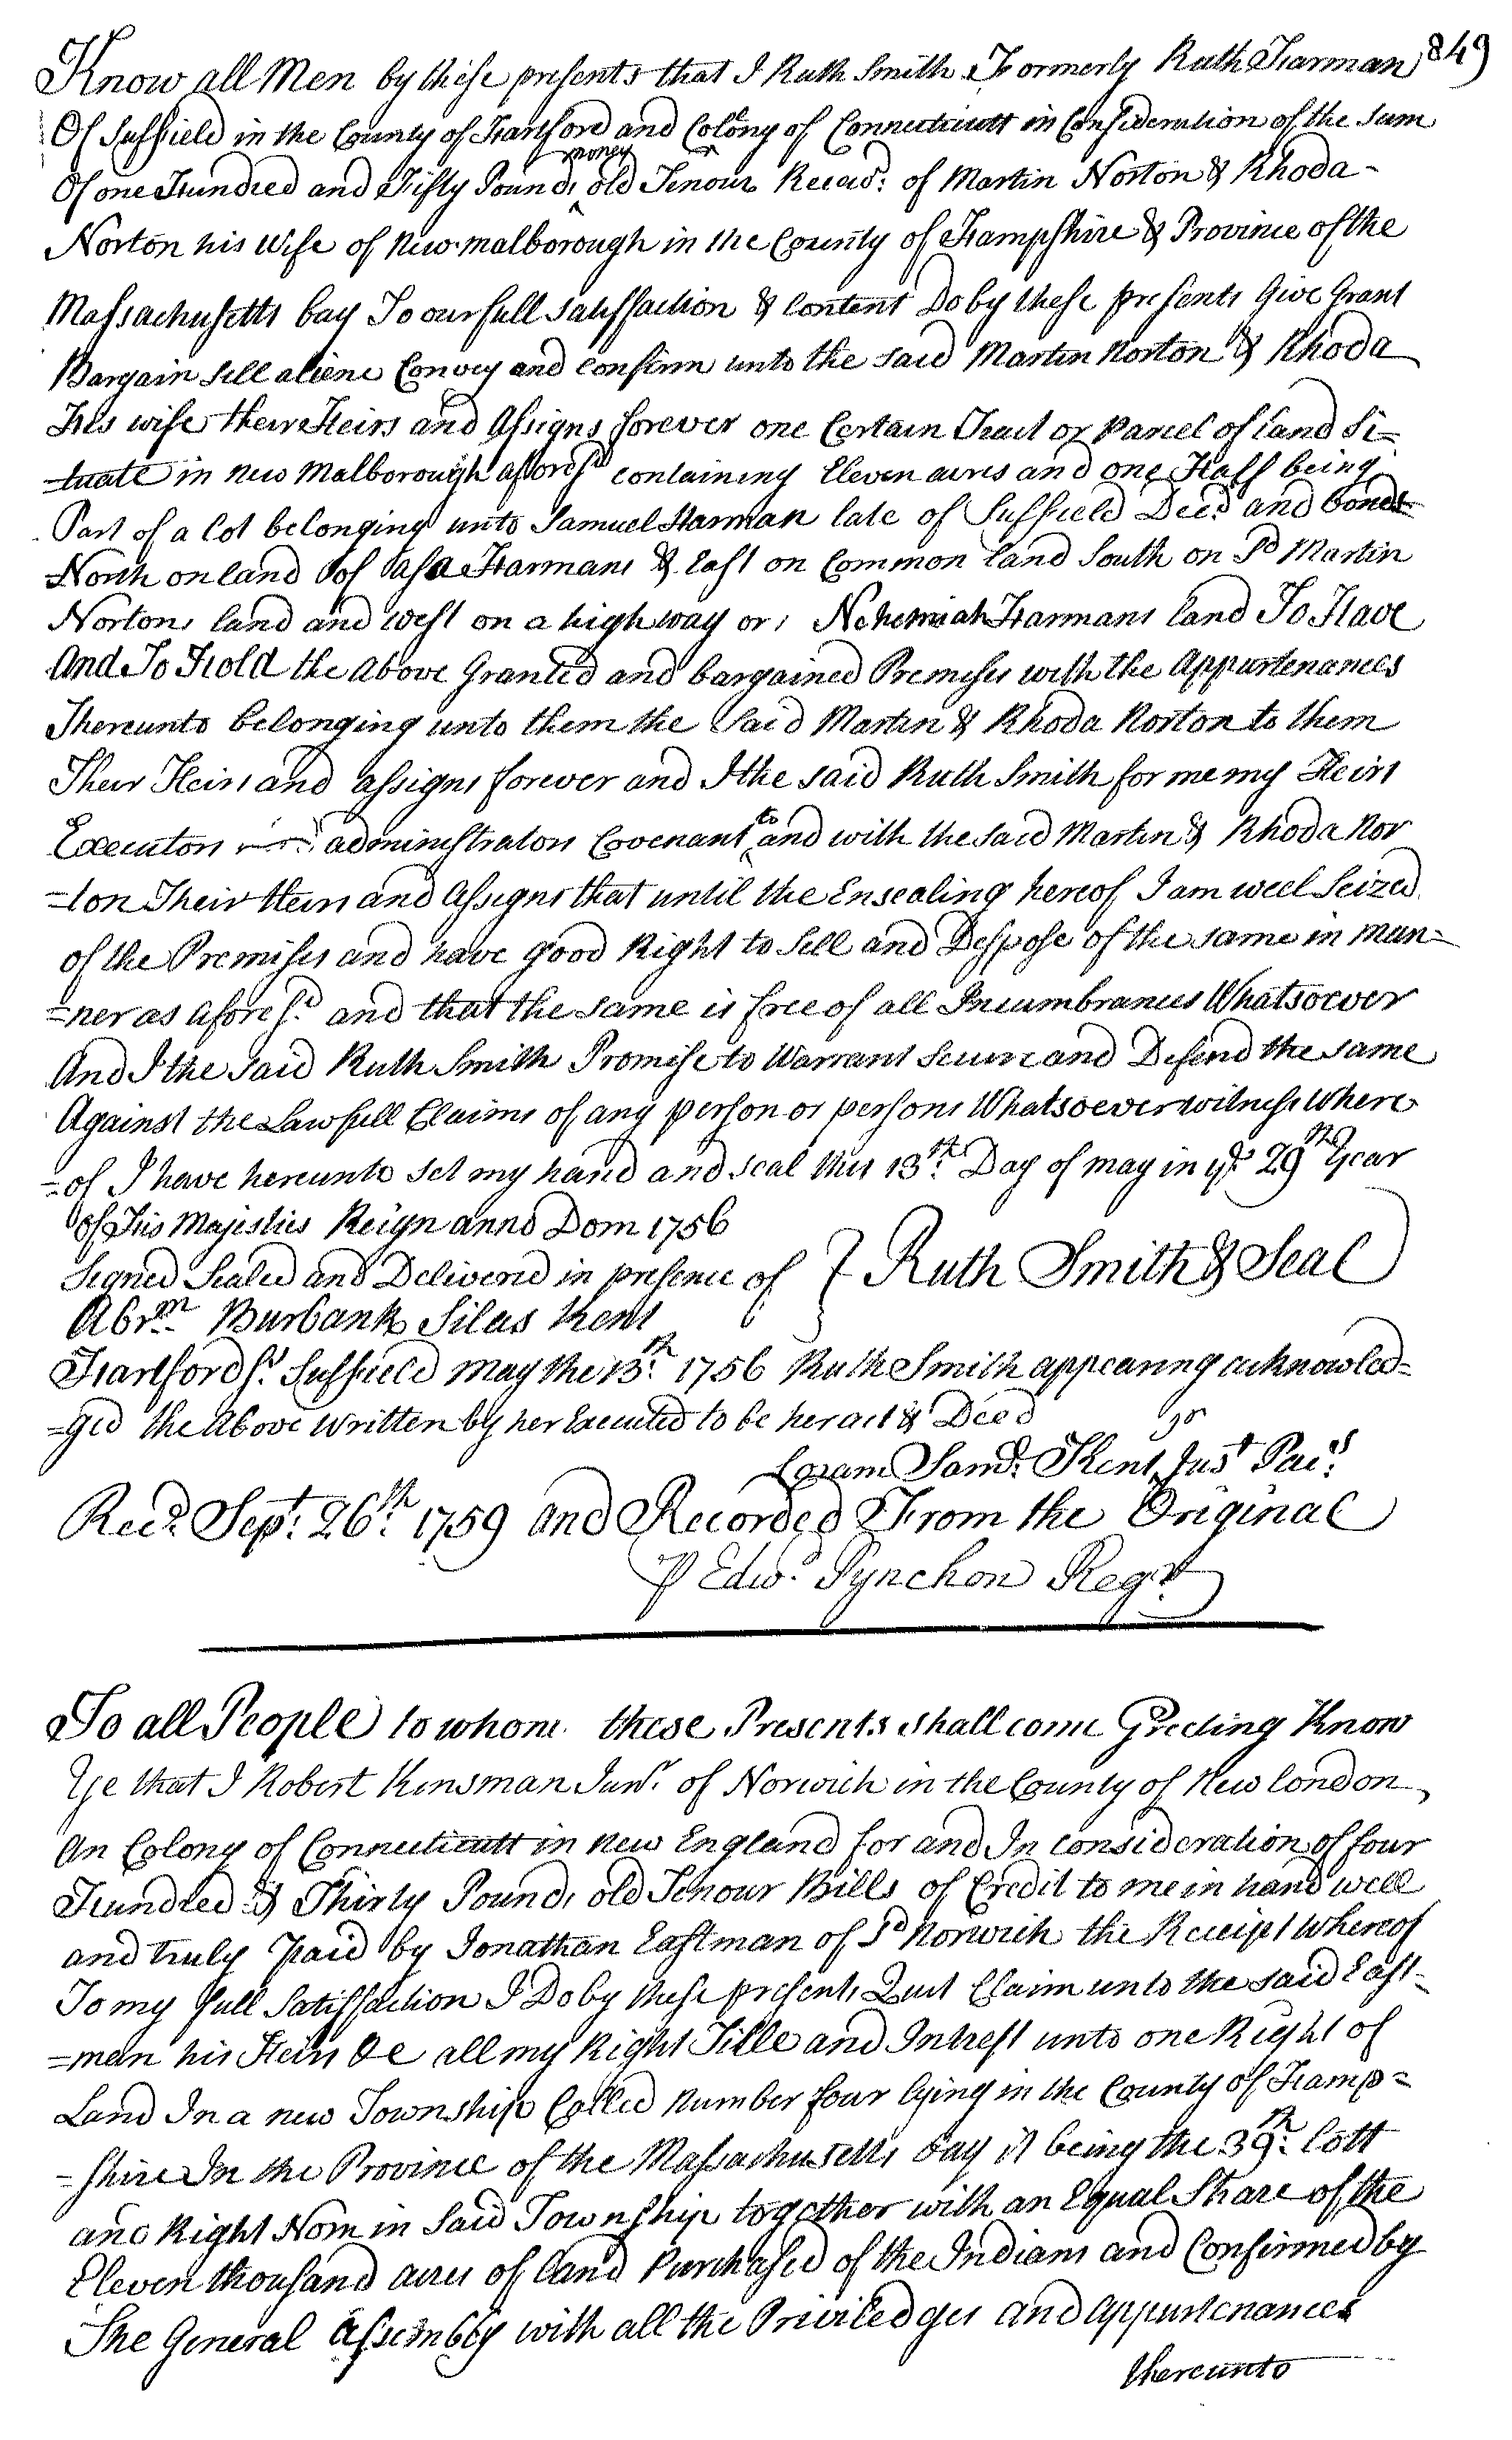 849
Know all Men by these presents that I Ruth Smith Formerly Ruth Harman
Of Suffield in the County of Hartford and Colony of Connecticutt in Consideration of the Sum
Of one Hundred and Fifty Pounds money old Tenour Recevd: of Martin Norton & Rhoda
Norton his Wife of New-malborough in the County of Hampshire & Province of the
Massachusetts bay To our full satisfaction & Content Do by these presents Give Grant
Bargain Sell aliene Convey and confirm unto the said Martin Norton & Rhoda
His wife their Heirs and Assigns forever one Certain Tract or Parcel of land Si=
=tuate in new Malborough aforesd containing Eleven acres and one Half being
Part of a lot belonging unto Samuel Harman late of Suffield Deed and bonds
North on land of Asa Harmans & East on Common land South on Sd Martin
Nortons land and West on a high way or Nehemiah Harmans land To Have
And To Hold the above Granted and bargained Premises with the Appurtenances
Thereunto belonging unto them the Said Martin & Rhoda Norton to them
Their Heirs and assigns forever and I the said Ruth Smith for me my Heirs
Executors administrators Covenant to and with the said Martin & Rhoda Nor
=ton Their Heirs and Assigns that until the Ensealing hereof I am well Seized
of the Premises and have good Right to Sell and Despose of the same in man=
=ner as afores.d and that the same is free of all Incumbrances Whatsoever
And I the said Ruth Smith Promise to Warrant Secure and Defend the same
Against the Lawfull Claims of any person or persons Whatsoever witness Where
=of I have hereunto set my hand and seal this 13th. Day of may in ye 29th Year
of His Majesties Reign anno Dom 1756
Signed Sealed and Delivered in presence of } Ruth Smith & Seal
Abrm. Burbank Silas Kent
Hartford Ss. Suffield May the 13th. 1756 Ruth Smith appearing acknowled=
=ged the Above Written by her Executed to be her act & Deed
Coram Saml. Kent Just Pacis
Recd. Sept. 26th. 1759 and Recorded From the Original
P Edwd. Pynchon Regr
To all People to whom these Presents shall come Greeting Know
Ye that I Robert Kinsman Junr. of Norwich in the County of New london
An Colony of Connecticutt in new England for and In consideration of four
Hundred & Thirty Pounds old Tenour Bills of Credit to me in hand well
and truly Paid by Jonathan Eastman of Sd Norwich the Receipt Whereof
To my full Satisfaction I Do by these presents Quit Claim unto the said East=
=man his Heirs &c all my Right Title and Intrest unto one Right of
Land In a new Township Called Number four lying in the County of Hamp=
=shire In the Province of the Massachusetts bay it being the 39th. lott
and Right Nom in Said Township together with an Equal Share of the
Eleven thousand acres of land Purchased of the Indians and Confirmed by
The General Assembly with all the Priviledges and appurtenances
thereunto